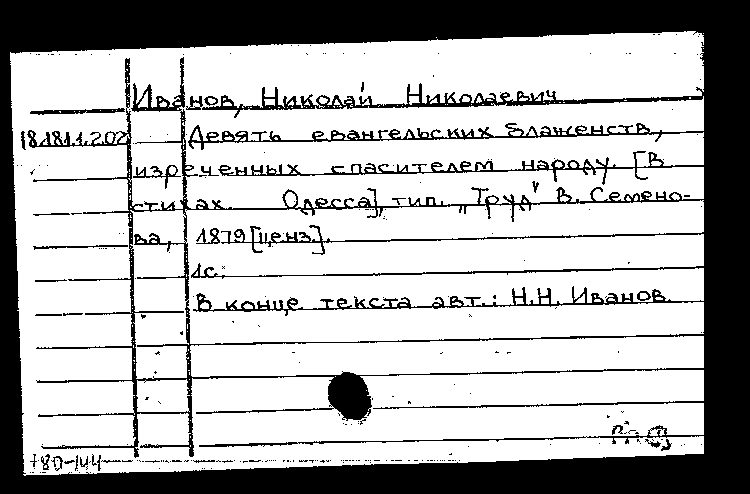 Иванов, Николай Николаевич
18.181.1.202 Девять евангельских блаженств,
изреченных спасителем народу. [В
стихах. Одесса], тип. „Труд" В. Семено-
ва, 1879 [ценз.].
1с.
В конце текста авт.: Н.Н. Иванов.
т80-144